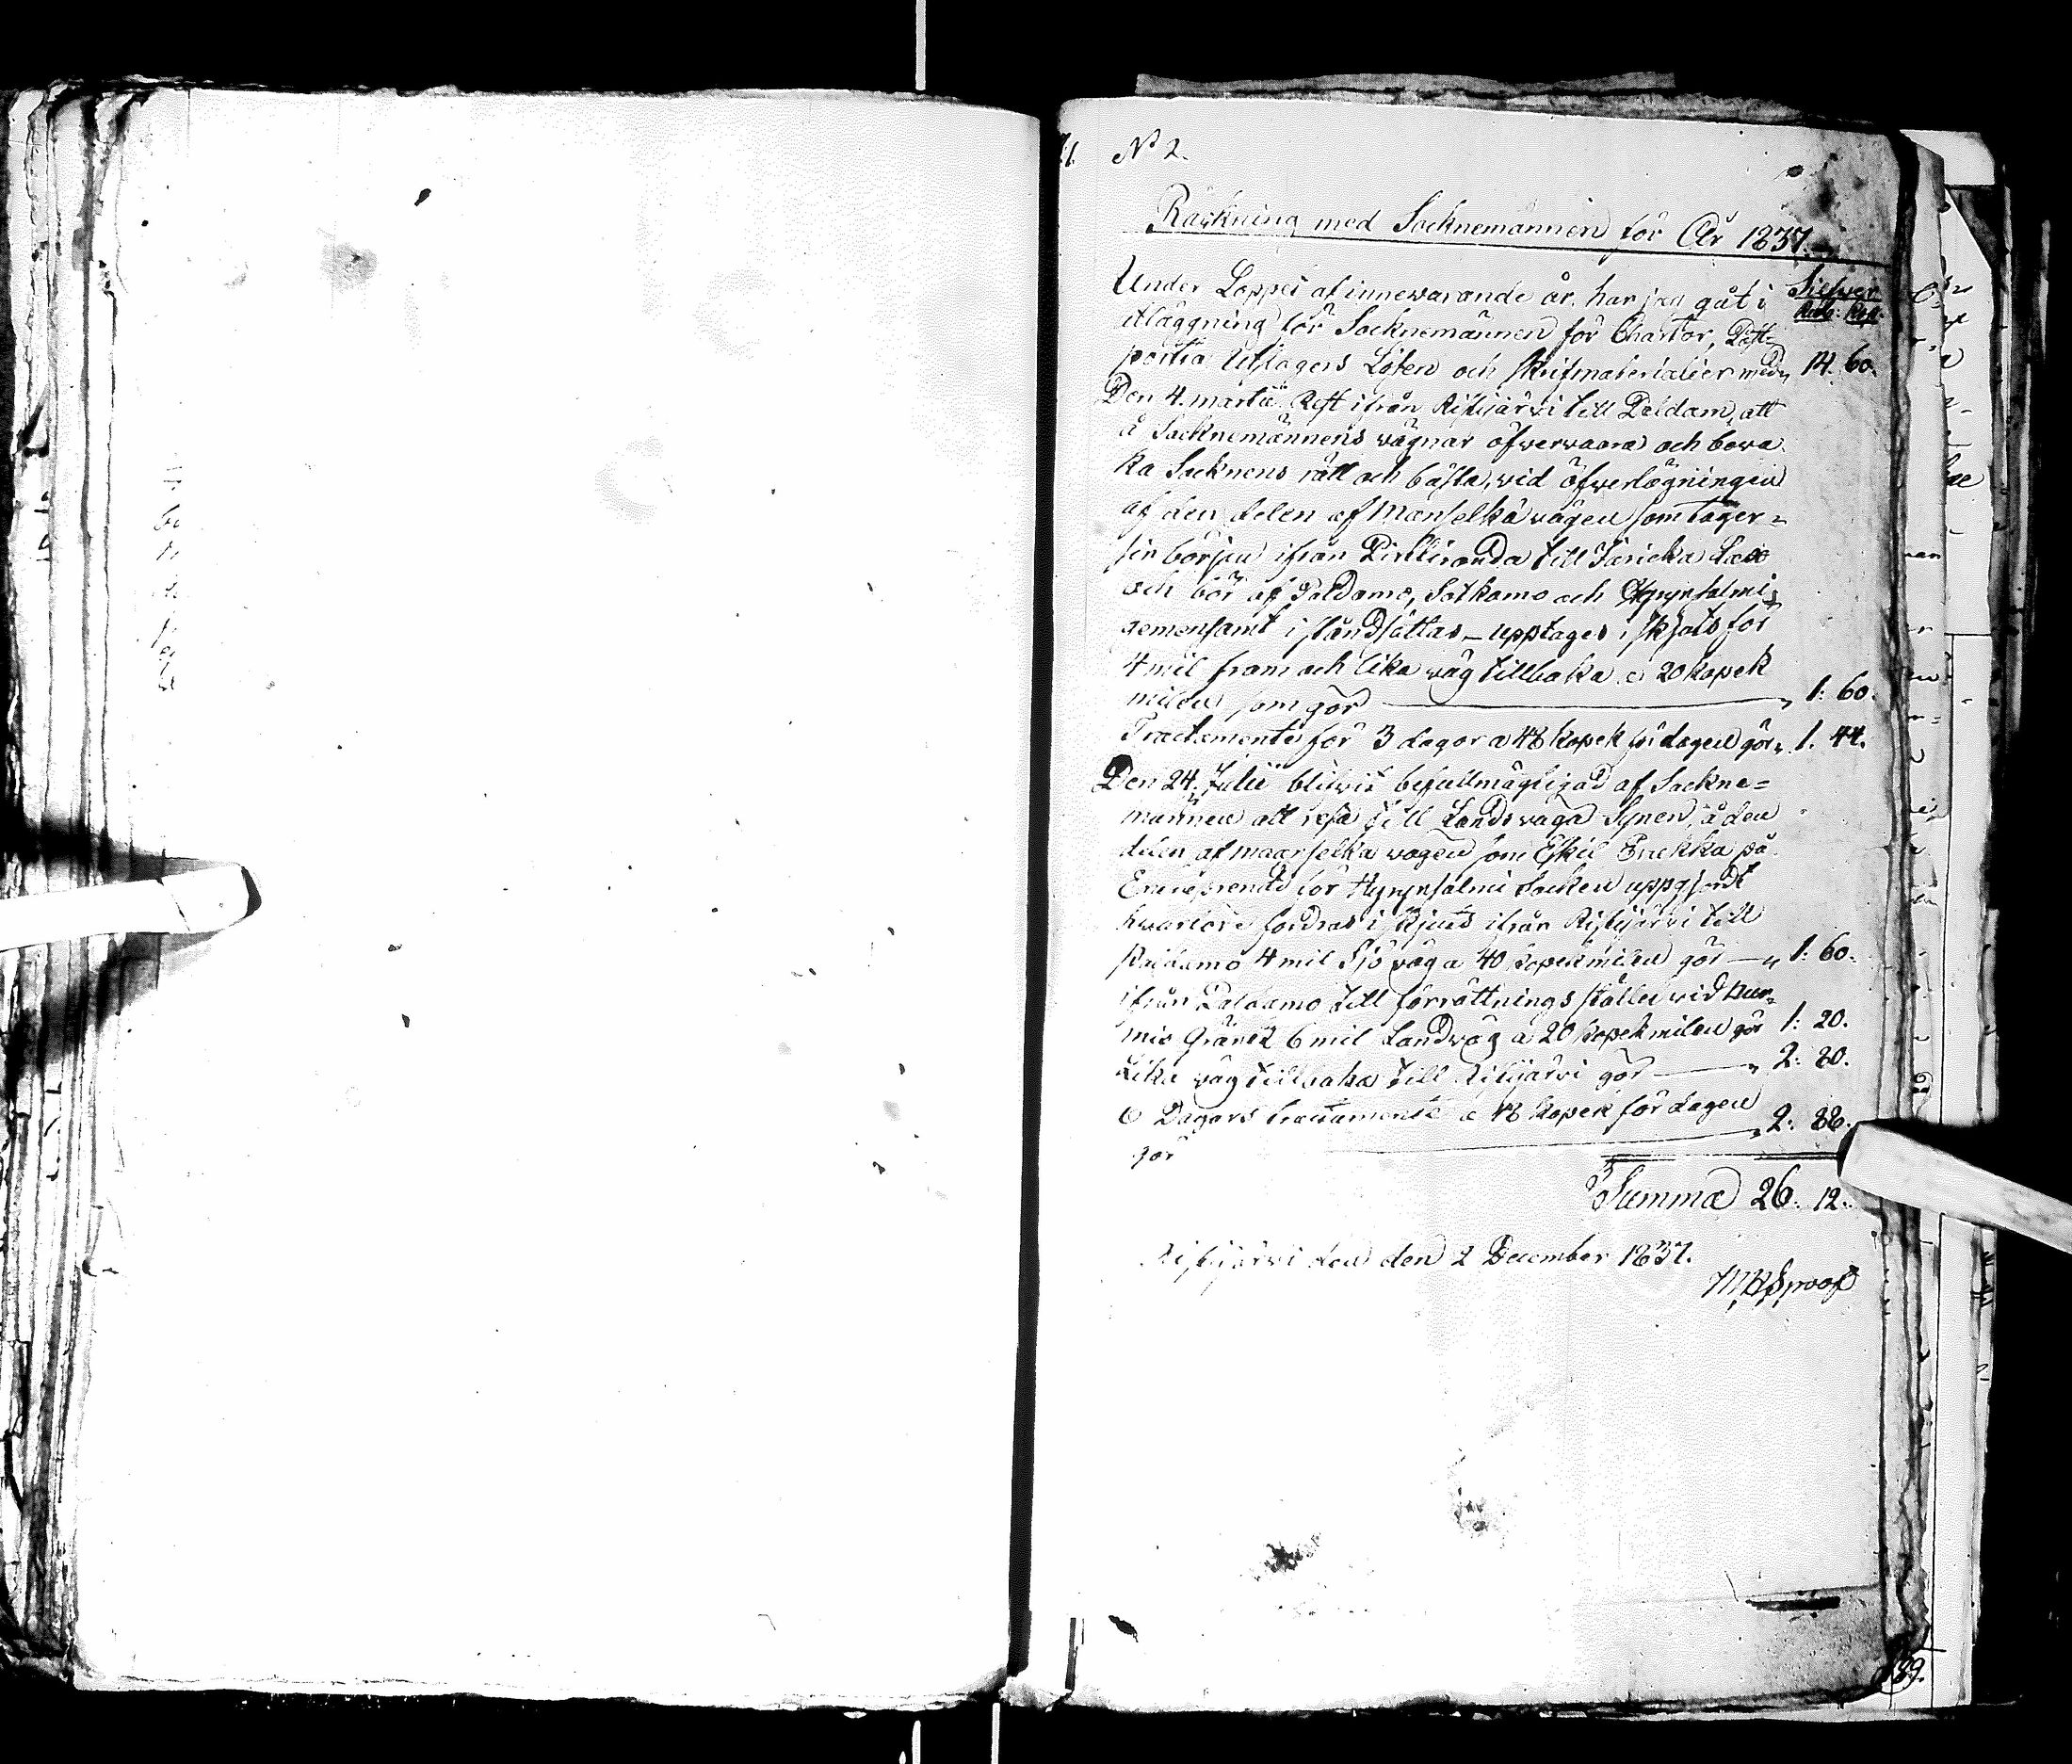 N° 2.
Räkning med Socknemännen för År 1837.
Silfwer
Rub: Kop:
Under Loppet af innewarande år, har jag gåt i
utläggning för Socknemännen för Chartor, Post-
porton och Skrifmaterialier med 14. 60.
Den 4. martii Rest ifrån Ristijärvi till Paldamo, att
å Socknemännens vägnar öfwerwaara och bewa-
ka Socknens rätt och bästa, vid öfwerlägningen
af den delen af Manselkä vägen som tager
sin början ifrån till
och bör af Paldamo, Sotkamo och Hyrynsalmi
gemensamt iståndsättas – upptages i skjuts för
4 mil fram och lika väg tillbaka a 20 kopek
milen som gör 1: 60.
Tractamente för 3 dagar a 48 kopek för dagen gör 1. 44.
Den 24. Julii blifwit befullmägtigad af Sockne-
männen att resa till Landsvägs Synen, å den
delen af maanselkä vägen som Eskil på
Entreprenad för Hyrynsalmi Socken uppgjordt
hwarföre fordras i skjuts ifrån Ristijärvi till
Paldamo 4 mil Sjö väg a 40 kopek milen gör 1: 60.
ifrån Paldamo till förrättnings stället wid
gränts 6 mil Landväg a 20 kopek milen gör 1: 20.
Lika väg tillbaka till Ristijärvi gör 2: 80.
6 Dagars tractamente a 48 kopek för dagen
gör 2: 88.
Summa 26. 12.
Ristijärvi den den 2 December 1837.
189.